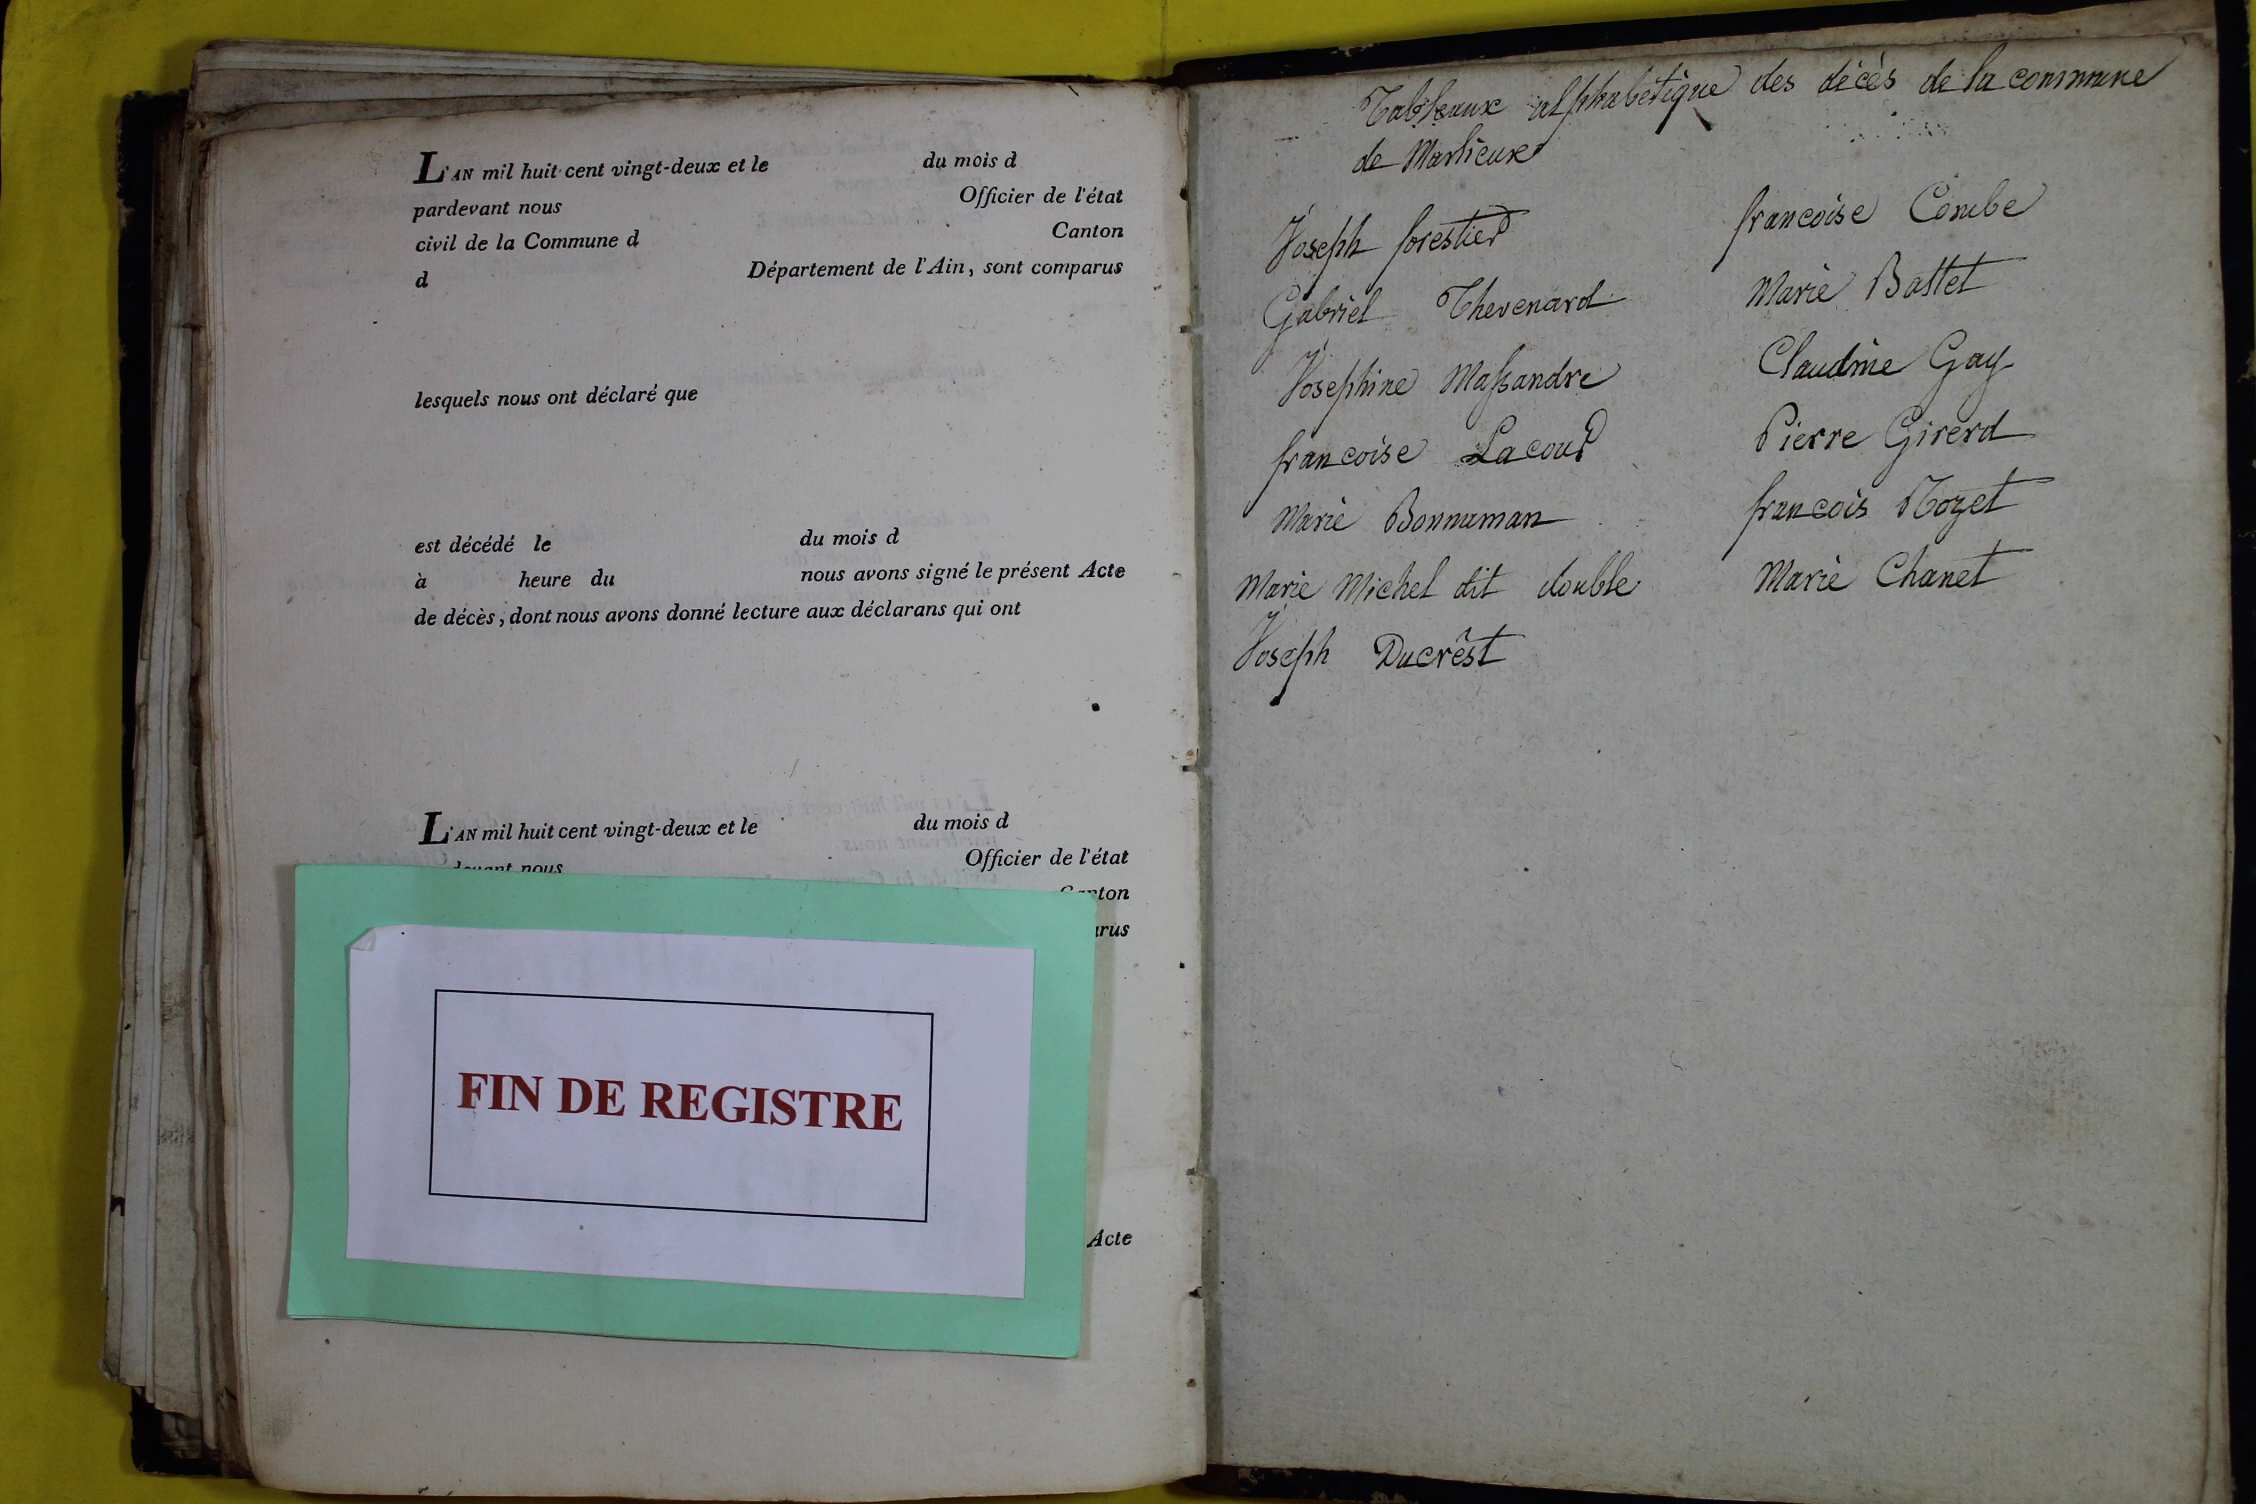 L'AN mil huit cent vingt-deux et le du mois d
pardevant nous Officier de l'état
civil de la Commune d Canton
d Département de l'Ain, sont comparus
lesquels nous ont déclaré que
est décédé le du mois d
à heure du nous avons signé le présent Acte
de décès, dont nous avons donné lecture aux déclarans qui ont
L'AN mil huit cent vingt-deux et le du mois d
nous Officier de l'état
FIN DE REGISTRE
Acte
Tableaux alphabétique des décès de la commune
de Marlieux
Joseph forestier
Gabriel Thevenard
Josephine Massandre
francoise Lacour
Marie Bonnaman
Marie Michel dit double
Joseph Ducrêst
francoise Combe
Marie Battet
Claudine Gay
Pierre Girerd
francois
Marie Chanet